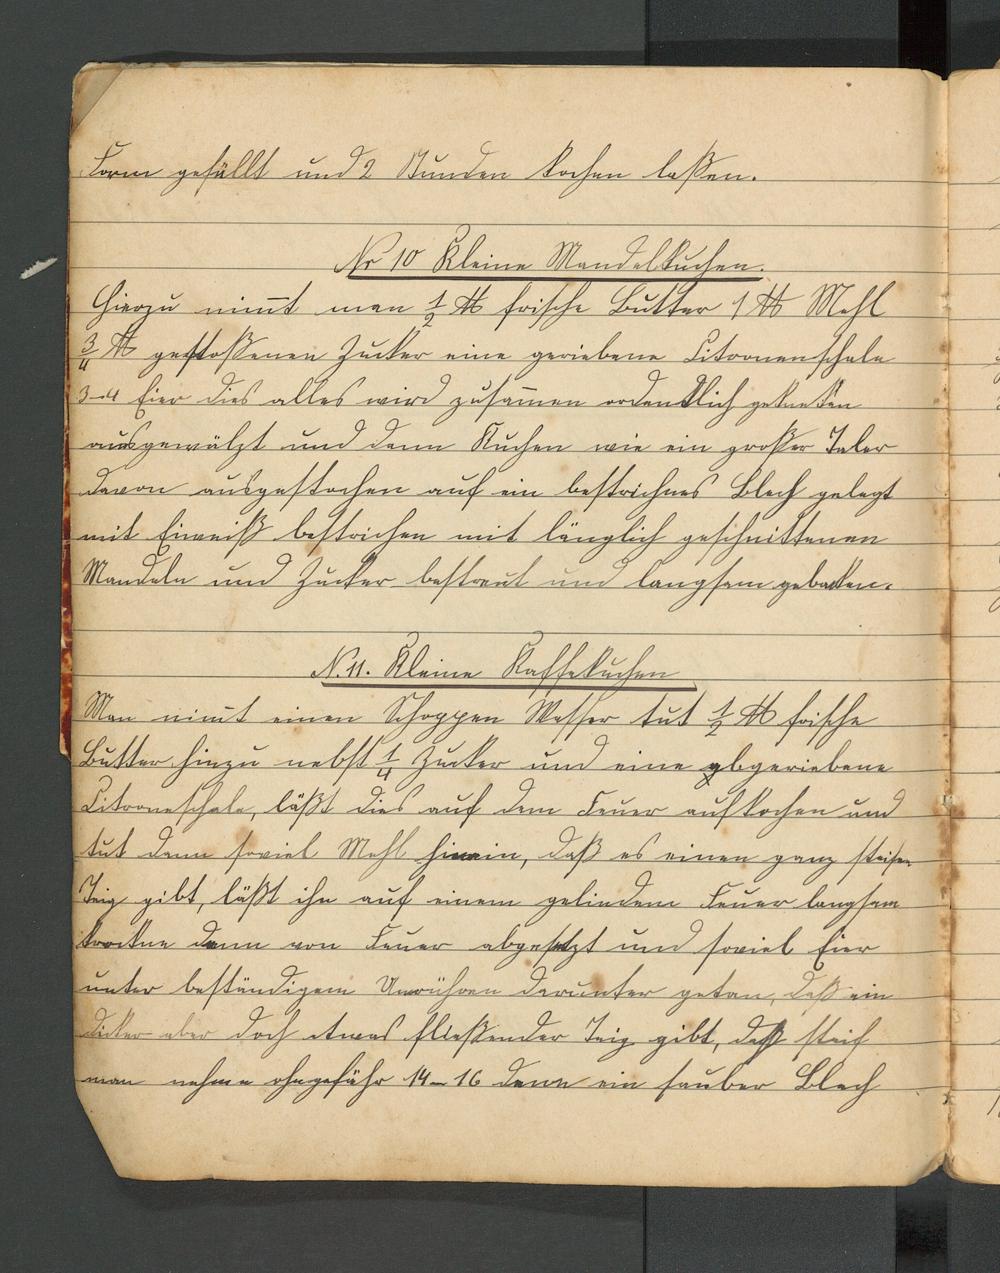 Form gefüllt und 2 Stunden kochen laßen.
Nr 10 Kleine Mandelkuchen.
Hierzu nim̄t man ½ ℔ frische Butter 1 ℔ Mehl
¾ ℔ gestoßenen Zucker eine geriebene Citronenschale
3-4 Eier dies alles wird zusam̄en ordentlich gekneten
ausgewälzt und dann Kuchen wie ein großer Taler
davon ausgestochen auf ein bestrichnes Blech gelegt
mit Eiweiß bestrichen mit länglich geschnittenen
Mandeln und Zucker bestreut und langsam gebacken.
N. 11. Kleine Kaffekuchen
Man nim̄t einen Schoppen Wasser tut ½ ℔ frische
Butter hinzu nebst ¼ Zucker und eine abgeriebene
Citroneschale, läßt dies auf dem Feuer aufkochen und
tut dann soviel Mehl hinein, daß es einen ganz steifen
Teig gibt, läßt ihn auf einem gelindem Feuer langsam
trockne dann von Feuer abgesetzt und soviel Eier
unter beständigem Umrühren darunter getan, daß ein
dicker aber doch etwas fließender Teig gibt, daß steif
man nehme ohngefähr 14-16 dann ein sauber Blech